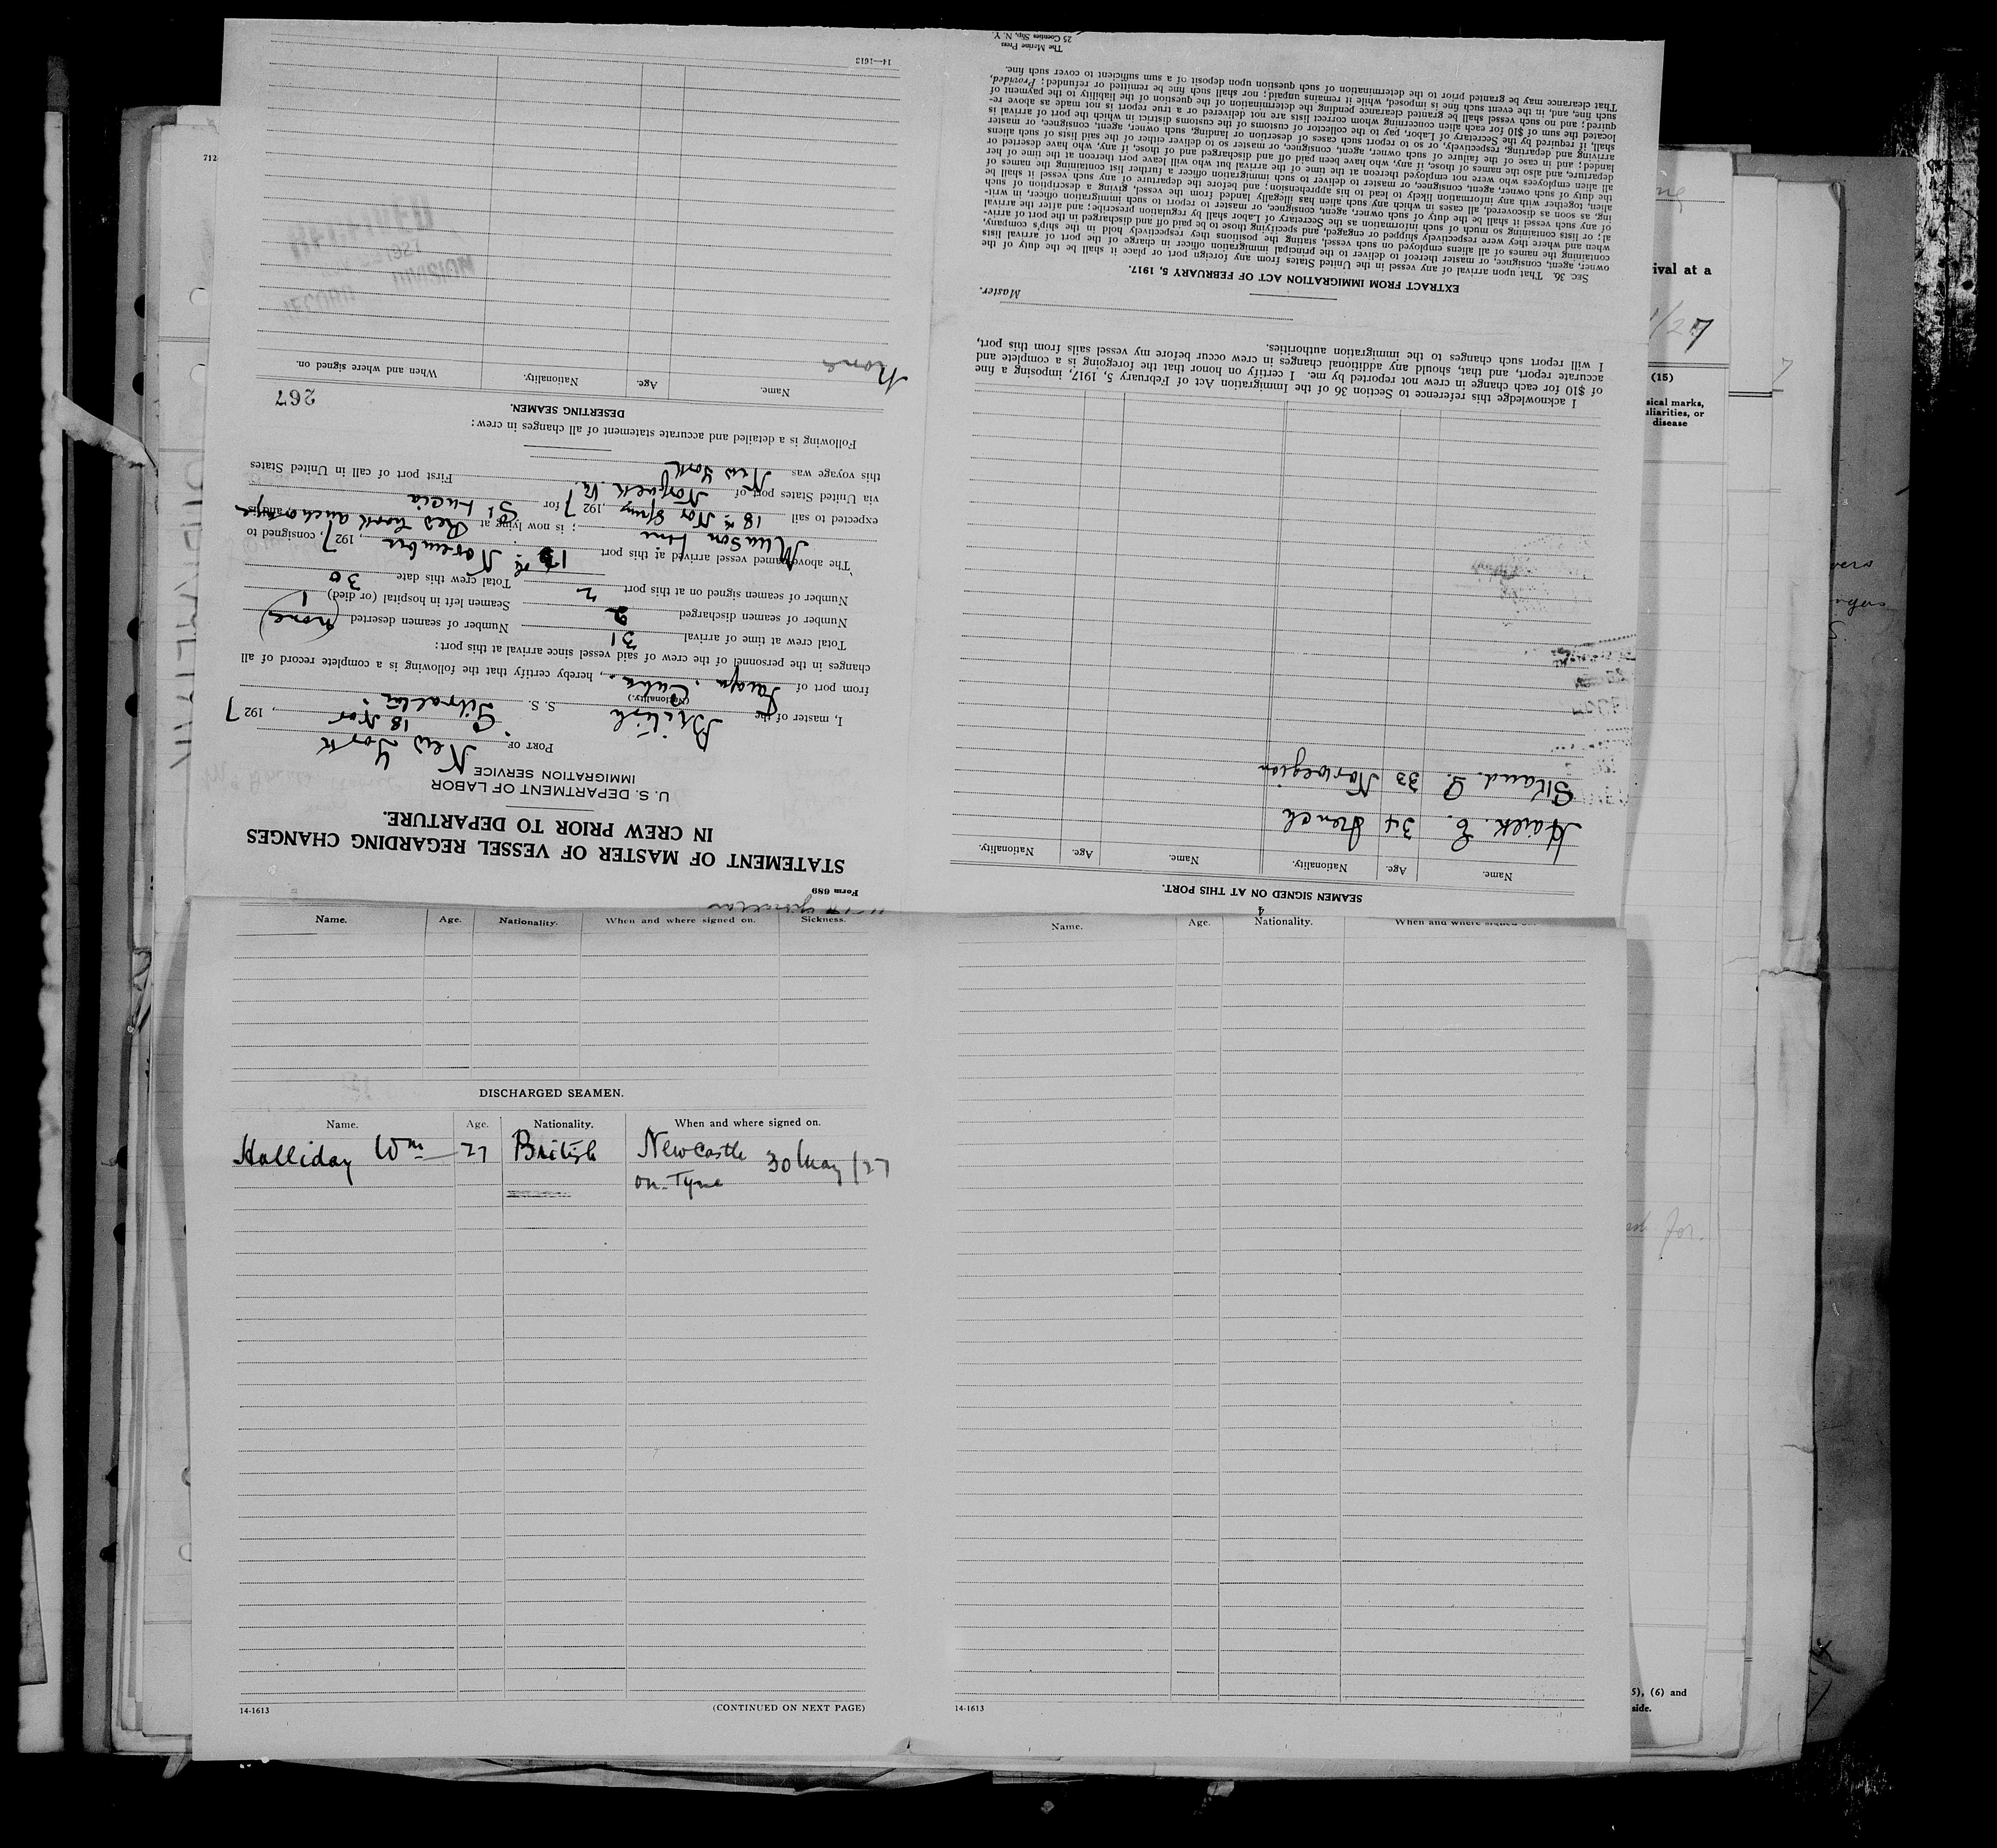 Form 689
STATEMENT OF MASTER OF VESSEL REGARDING CHANGES
IN CREW PRIOR TO DEPARTURE.
U. S. DEPARTMENT OF LABOR
IMMIGRATION SERVICE
PORT OF New York
18 Nov , 1927
I, master of the British S. S. Gibraltar
(Nationality.)
from port of Cuba , hereby certify that the following is a complete record of all
changes in the personnel of the crew of said vessel since arrival at this port:
Total crew at time of arrival 31 Number of seamen deserted (none)
Number of seamen discharged 2 Seamen left in hospital (or died) 1
Number of seamen signed on at this port 2 Total crew this date 30
The above-named vessel arrived at this port November , 1927, consigned to
Munson Line ; is now lying at Red Hook anchorage , and is
expected to sail 18th Nov 5 pm , 1927 for St Lucia
via United States port of Norfolk Va. First port of call in United States
this voyage was New York
Following is a detailed and accurate statement of all changes in crew:
DESERTING SEAMEN.
267
Name. Age. Nationality. When and where signed on.
None
RECEIVED
1927
RECORD DIVISION
14—1613
SEAMEN SIGNED ON AT THIS PORT.
Name. Age. Nationality. Name. Age. Nationality.
E. 34 French
33 Norwegian
I acknowledge this reference to Section 36 of the Immigration Act of February 5, 1917, imposing a fine
of $10 for each change in crew not reported by me. I certify on honor that the foregoing is a complete and
accurate report, and that, should any additional changes in crew occur before my vessel sails from this port,
I will report such changes to the immigration authorities.
Master.
EXTRACT FROM IMMIGRATION ACT OF FEBRUARY 5, 1917.
SEC. 36. That upon arrival of any vessel in the United States from any foreign port or place it shall be the duty of the
owner, agent, consignee, or master thereof to deliver to the principal immigration officer in charge of the port of arrival lists
containing the names of all aliens employed on such vessel, stating the positions they respectively hold in the ship's company,
when and where they were respectively shipped or engaged, and specifying those to be paid off and discharged in the port of arriv-
al; or lists containing so much of such information as the Secretary of Labor shall by regulation prescribe; and after the arrival
of any such vessel it shall be the duty of such owner, agent, consignee, or master to report to such immigration officer, in writ-
ing, as soon as discovered, all cases in which any such alien has illegally landed from the vessel, giving a description of such
alien, together with any information likely to lead to his apprehension; and before the departure of any such vessel it shall be
the duty of such owner, agent, consignee, or master to deliver to such immigration officer a further list containing the names of
all alien employees who were not employed thereon at the time of the arrival but who will leave port thereon at the time of her
departure, and also the names of those, if any, who have been paid off and discharged and of those, if any, who have deserted or
landed; and in case of the failure of such owner, agent, consignee, or master so to deliver either of the said lists of such aliens
arriving and departing, respectively, or so to report such cases of desertion or landing, such owner, agent, consignee, or master
shall, if required by the Secretary of Labor, pay to the collector of customs of the customs district in which the port of arrival is
located the sum of $10 for each alien concerning whom correct lists are not delivered or a true report is not made as above re-
quired; and no such vessel shall be granted clearance pending the determination of the question of the liability to the payment of
such fine, and, in the event such fine is imposed, while it remains unpaid; nor shall such fine be remitted or refunded; Provided,
That clearance may be granted prior to the determination of such question upon deposit of a sum sufficient to cover such fine.
The Marine Press
25 Coenties Slip, N. Y.
Name. Age. Nationality. When and where signed on. Sickness.
DISCHARGED SEAMEN.
Name. Age. Nationality. When and where signed on.
Halliday Wm 27 British Newcastle 30 May /27
on-Tyne
14-1613 (CONTINUED ON NEXT PAGE)
4
Name. Age. Nationality. When and where signed on.
14-1613
712
ival at a
/27
(15)
sical marks,
uliarities, or
disease
for
5), (6) and
side.